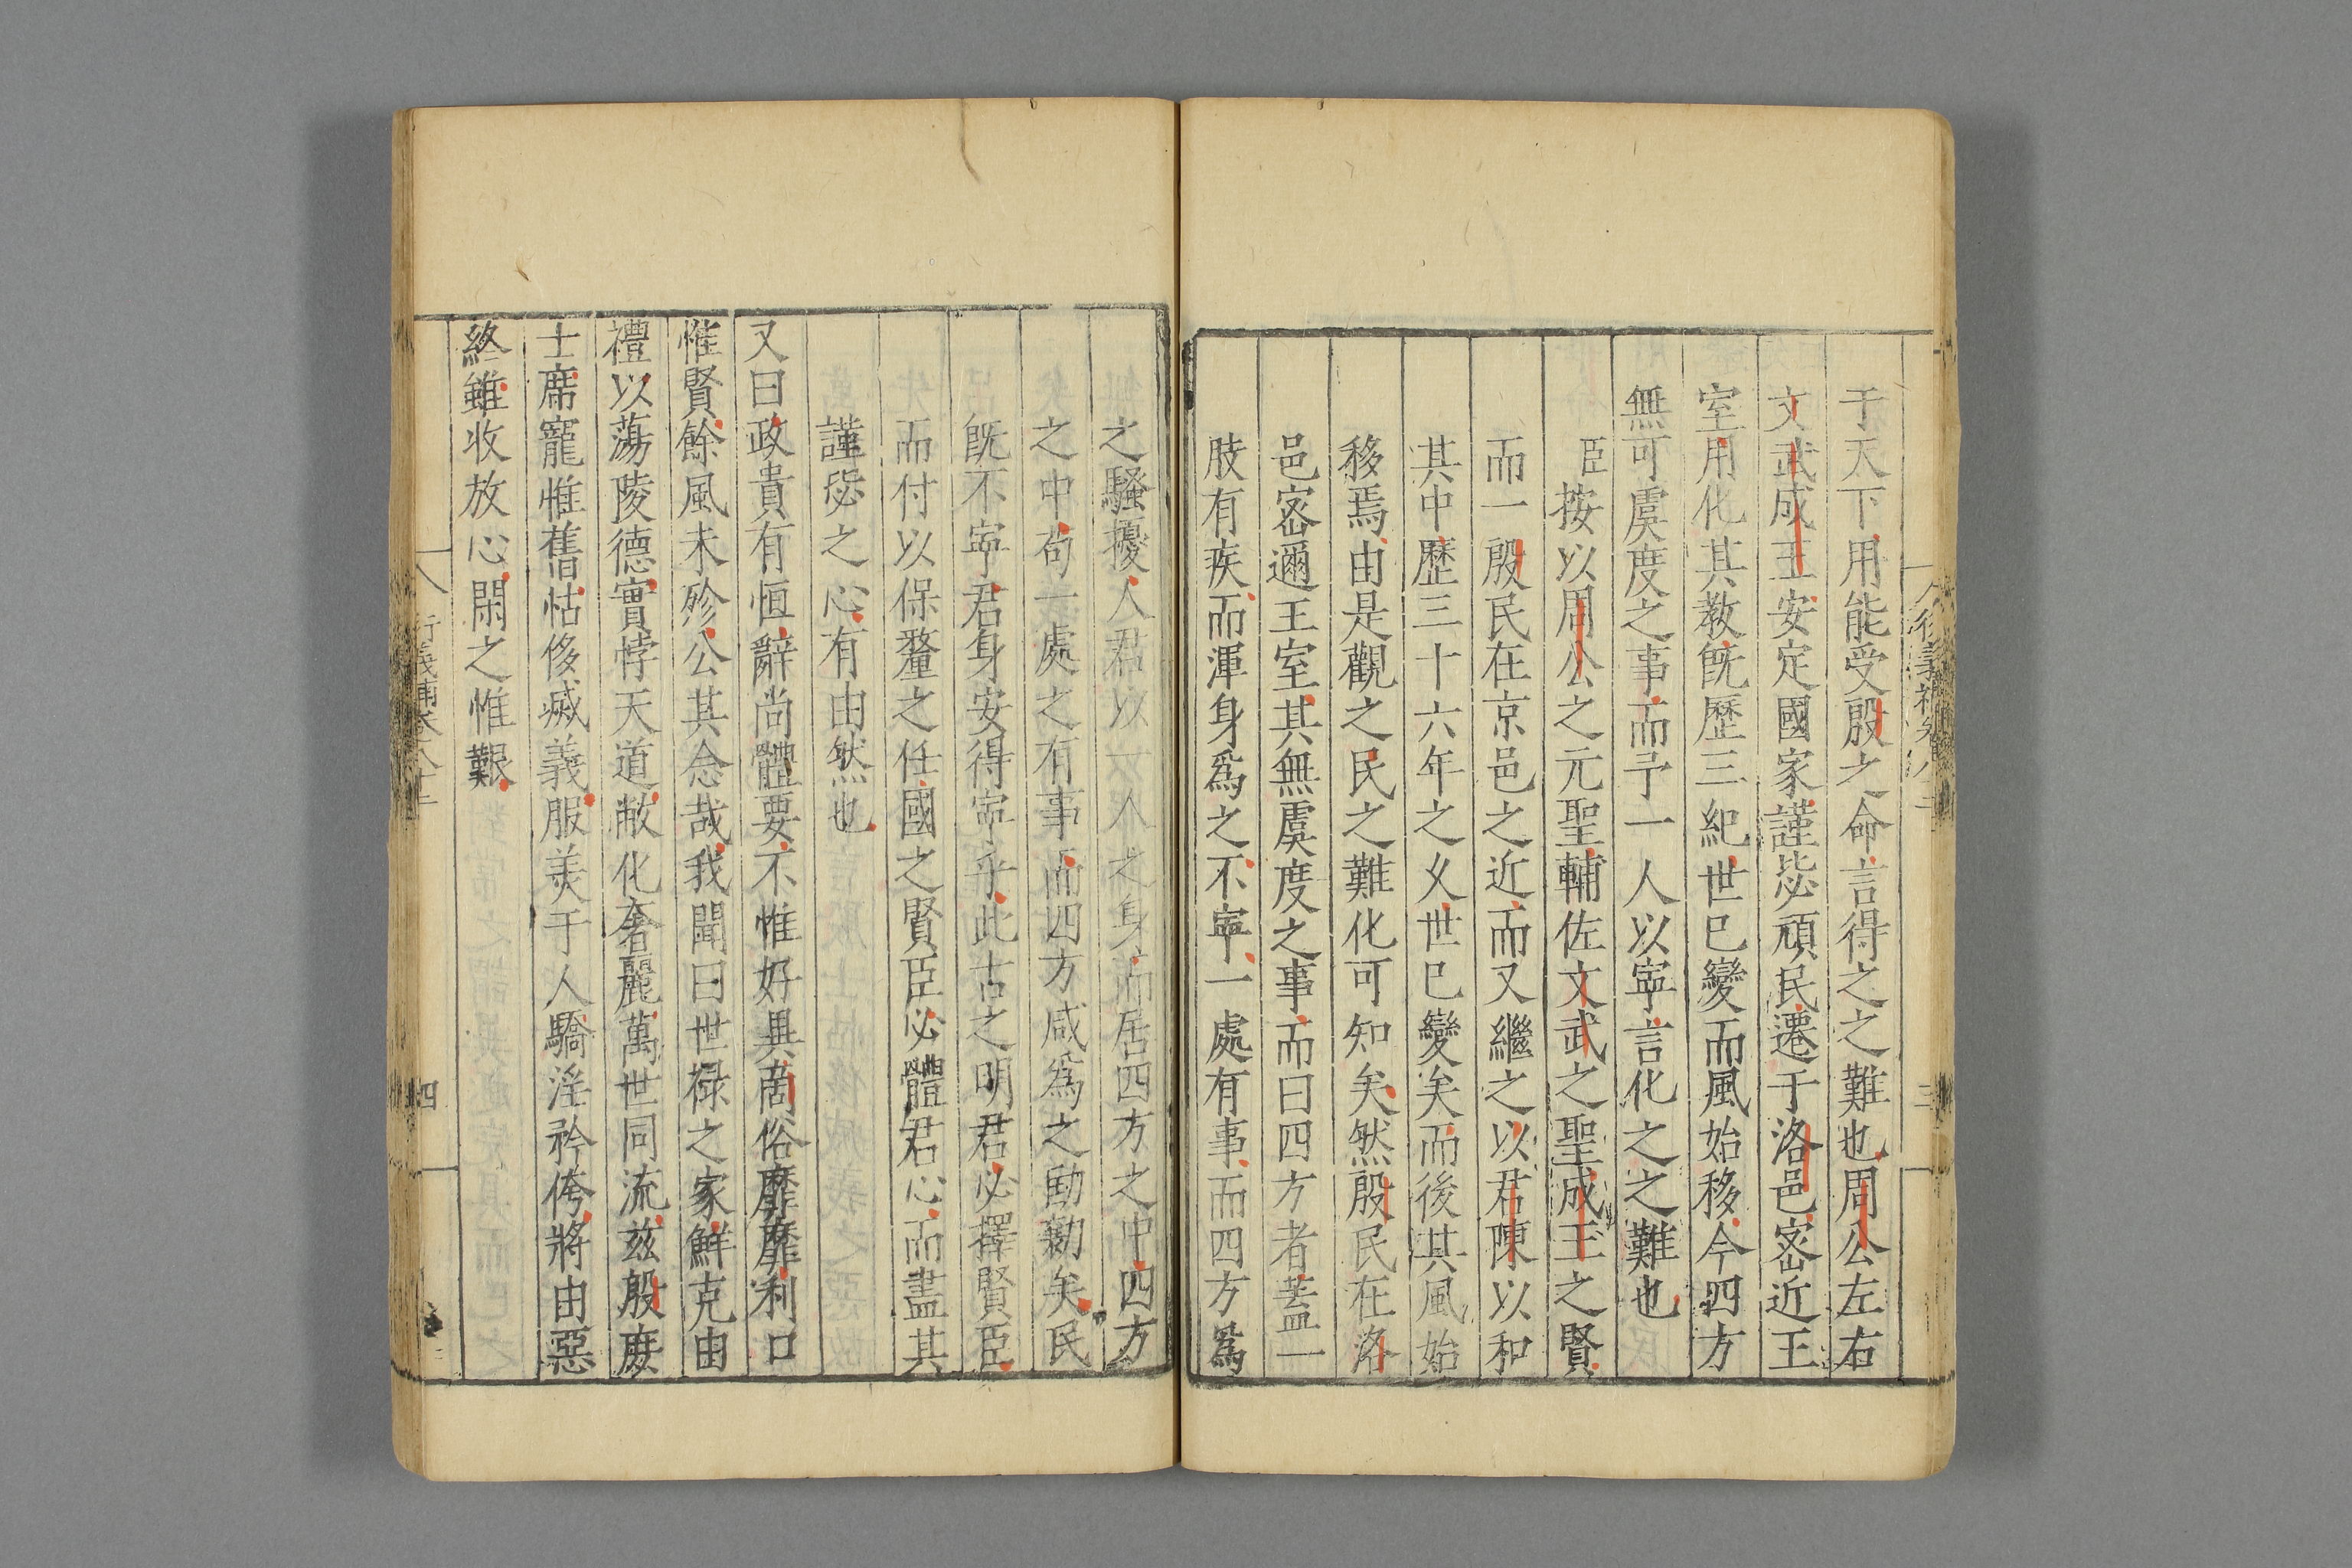 于天下用能受殷之命言得之之難也周公左右
文武成王安定國家謹毖頑民遷于洛邑密近王
室用化其教旣歷三紀世巳變而風始移今四方
無可虞度之事而予一人以寧言化之之難也
臣按以周公之元聖輔佐文武之聖成王之賢
而一殷民在京邑之近而又繼之以君陳以和
其中歷三十六年之久世巳變矣而後其風始
移焉由是觀之民之難化可知矣然殷民在洛
邑密邇王室其無虞度之事而曰四方者蓋一
肢有疾而渾身爲之不寧一處有事而四方爲
之騷擾人君以一人之身而居四方之中四方
之中苟一處之有事而四方咸爲之動勷矣民
旣不寧君身安得寧乎此古之明君必擇賢臣
而付以保釐之任國之賢臣必體君心而盡其
謹毖之心有由然也
又曰政貴有恒辭尚體要不惟好異商俗靡靡利口
惟賢餘風未殄公其念哉我聞曰世祿之家鮮克由
禮以蕩陵德實悖天道敝化奢麗萬世同流兹殷庶
士席寵惟舊怙侈滅義服美于人驕淫矜侉將由惡
終雖收放心閑之惟艱
行義補卷八十二
四